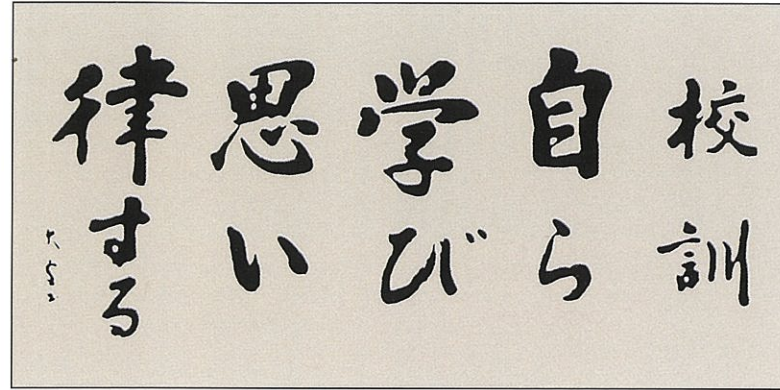 校訓
自ら
学び
思い
律する